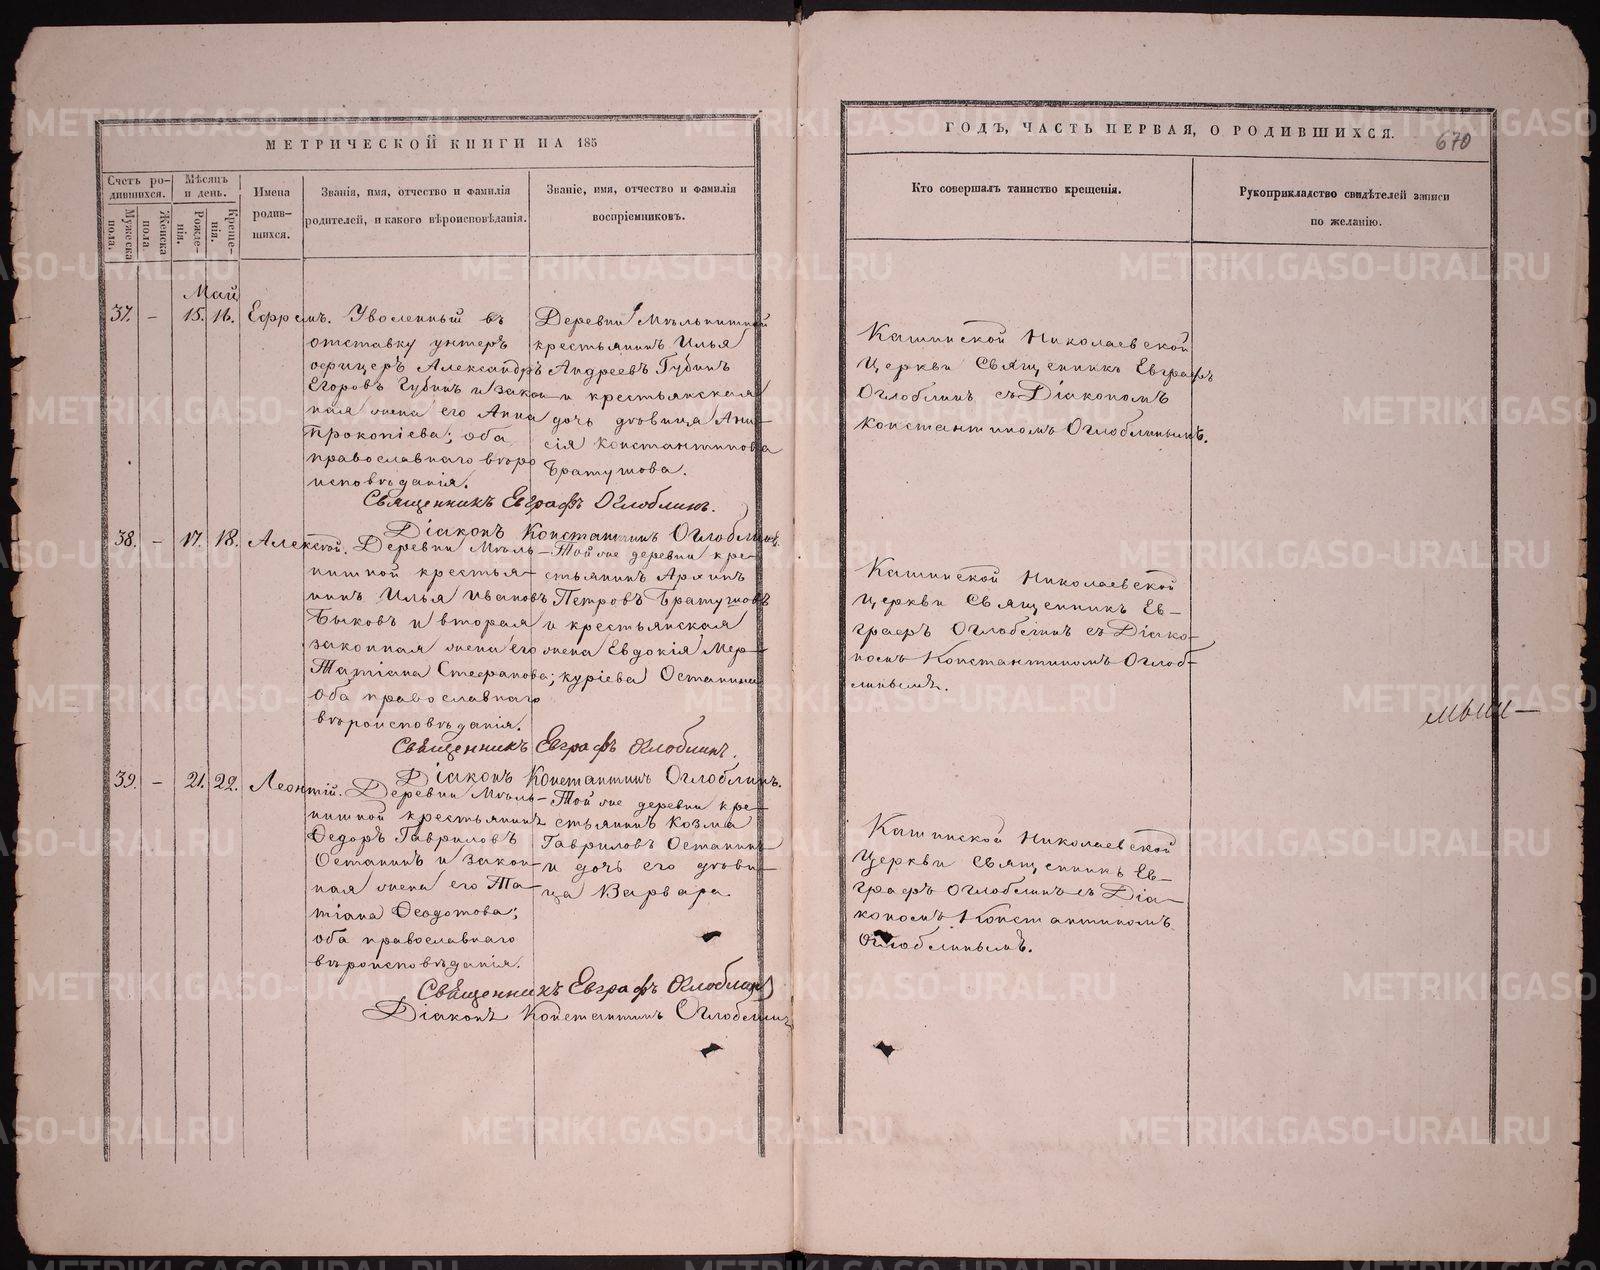 МЕТРИЧЕСКОЙ КНИГИ НА 185
ГОДЪ, ЧАСТЬ ПЕРВАЯ, О РОДИВШИХСЯ.
670
Счетъ ро-
дившихся.
Мѣсяцъ
и день.
Мужеска
пола.
Женска
пола.
Рожде-
нія.
Креще-
нія.
Имена
родив-
шихся.
Званія, имя, отчество и фамилія
родителей, и какого вѣроисповѣданія.
Званіе, имя, отчество и фамилія
воспріемниковъ.
Кто совершалъ таинство крещенія.
Рукоприкладство свидѣтелей записи
по желанію.
Май
37. – 15. 16. Ефремъ.
Уволенный въ
отставку унтеръ
офицеръ Александръ
Егоровъ Губинъ и закон-
ная жена его Анна
Прокопіева; оба
православнаго вѣро
исповѣданія.
Деревни Мѣльнишной
крестьянинъ Илья
Андреевъ Губинъ
и крестьянская
дочь дѣвица Ани-
сія Константинова
Братушова.
Кашинской Николаевской
Церкви Священникъ Евграфъ
Оглоблинъ съ Діакономъ
Константиномъ Оглоблинымъ.
Священникъ Евграфъ Оглоблинъ.
Діаконъ Константинъ Оглоблинъ.
38. – 17. 18. Алексѣй.
Деревни Мѣль-
нишной крестья-
нинъ Илья Ивановъ
Быковъ и вторая
законная жена его
Татіана Стефанова;
оба православнаго
вѣроисповѣданія.
Той же деревни кре-
стьянинъ Архипъ
Петровъ Братушовъ
и крестьянская
жена Евдокія Мер-
куріева Останина
Кашинской Николаевской
Церкви Священникъ Ев-
графъ Оглоблинъ съ Діако-
номъ Константиномъ Оглоб-
линымъ.
Священникъ Евграфъ Оглоблинъ.
Діаконъ Константинъ Оглоблинъ.
39. – 21. 22. Леонтій.
Деревни Мѣль-
нишной крестьянинъ
Ѳедоръ Гавриловъ
Останинъ и закон-
ная жена его Та-
тіана Ѳеодотова;
оба православнаго
вѣроисповѣданія.
Той же деревни кре-
стьянинъ Козма
Гавриловъ Останинъ
и дочь его дѣви-
ца Варвара.
Кашинской Николаевской
Церкви Священникъ Ев-
графъ Оглоблинъ съ Діа-
кономъ Константиномъ
Оглоблинымъ.
Священникъ Евграфъ Оглоблинъ
Діаконъ Константинъ Оглоблинъ
METRIKI.GASO-URAL.RU